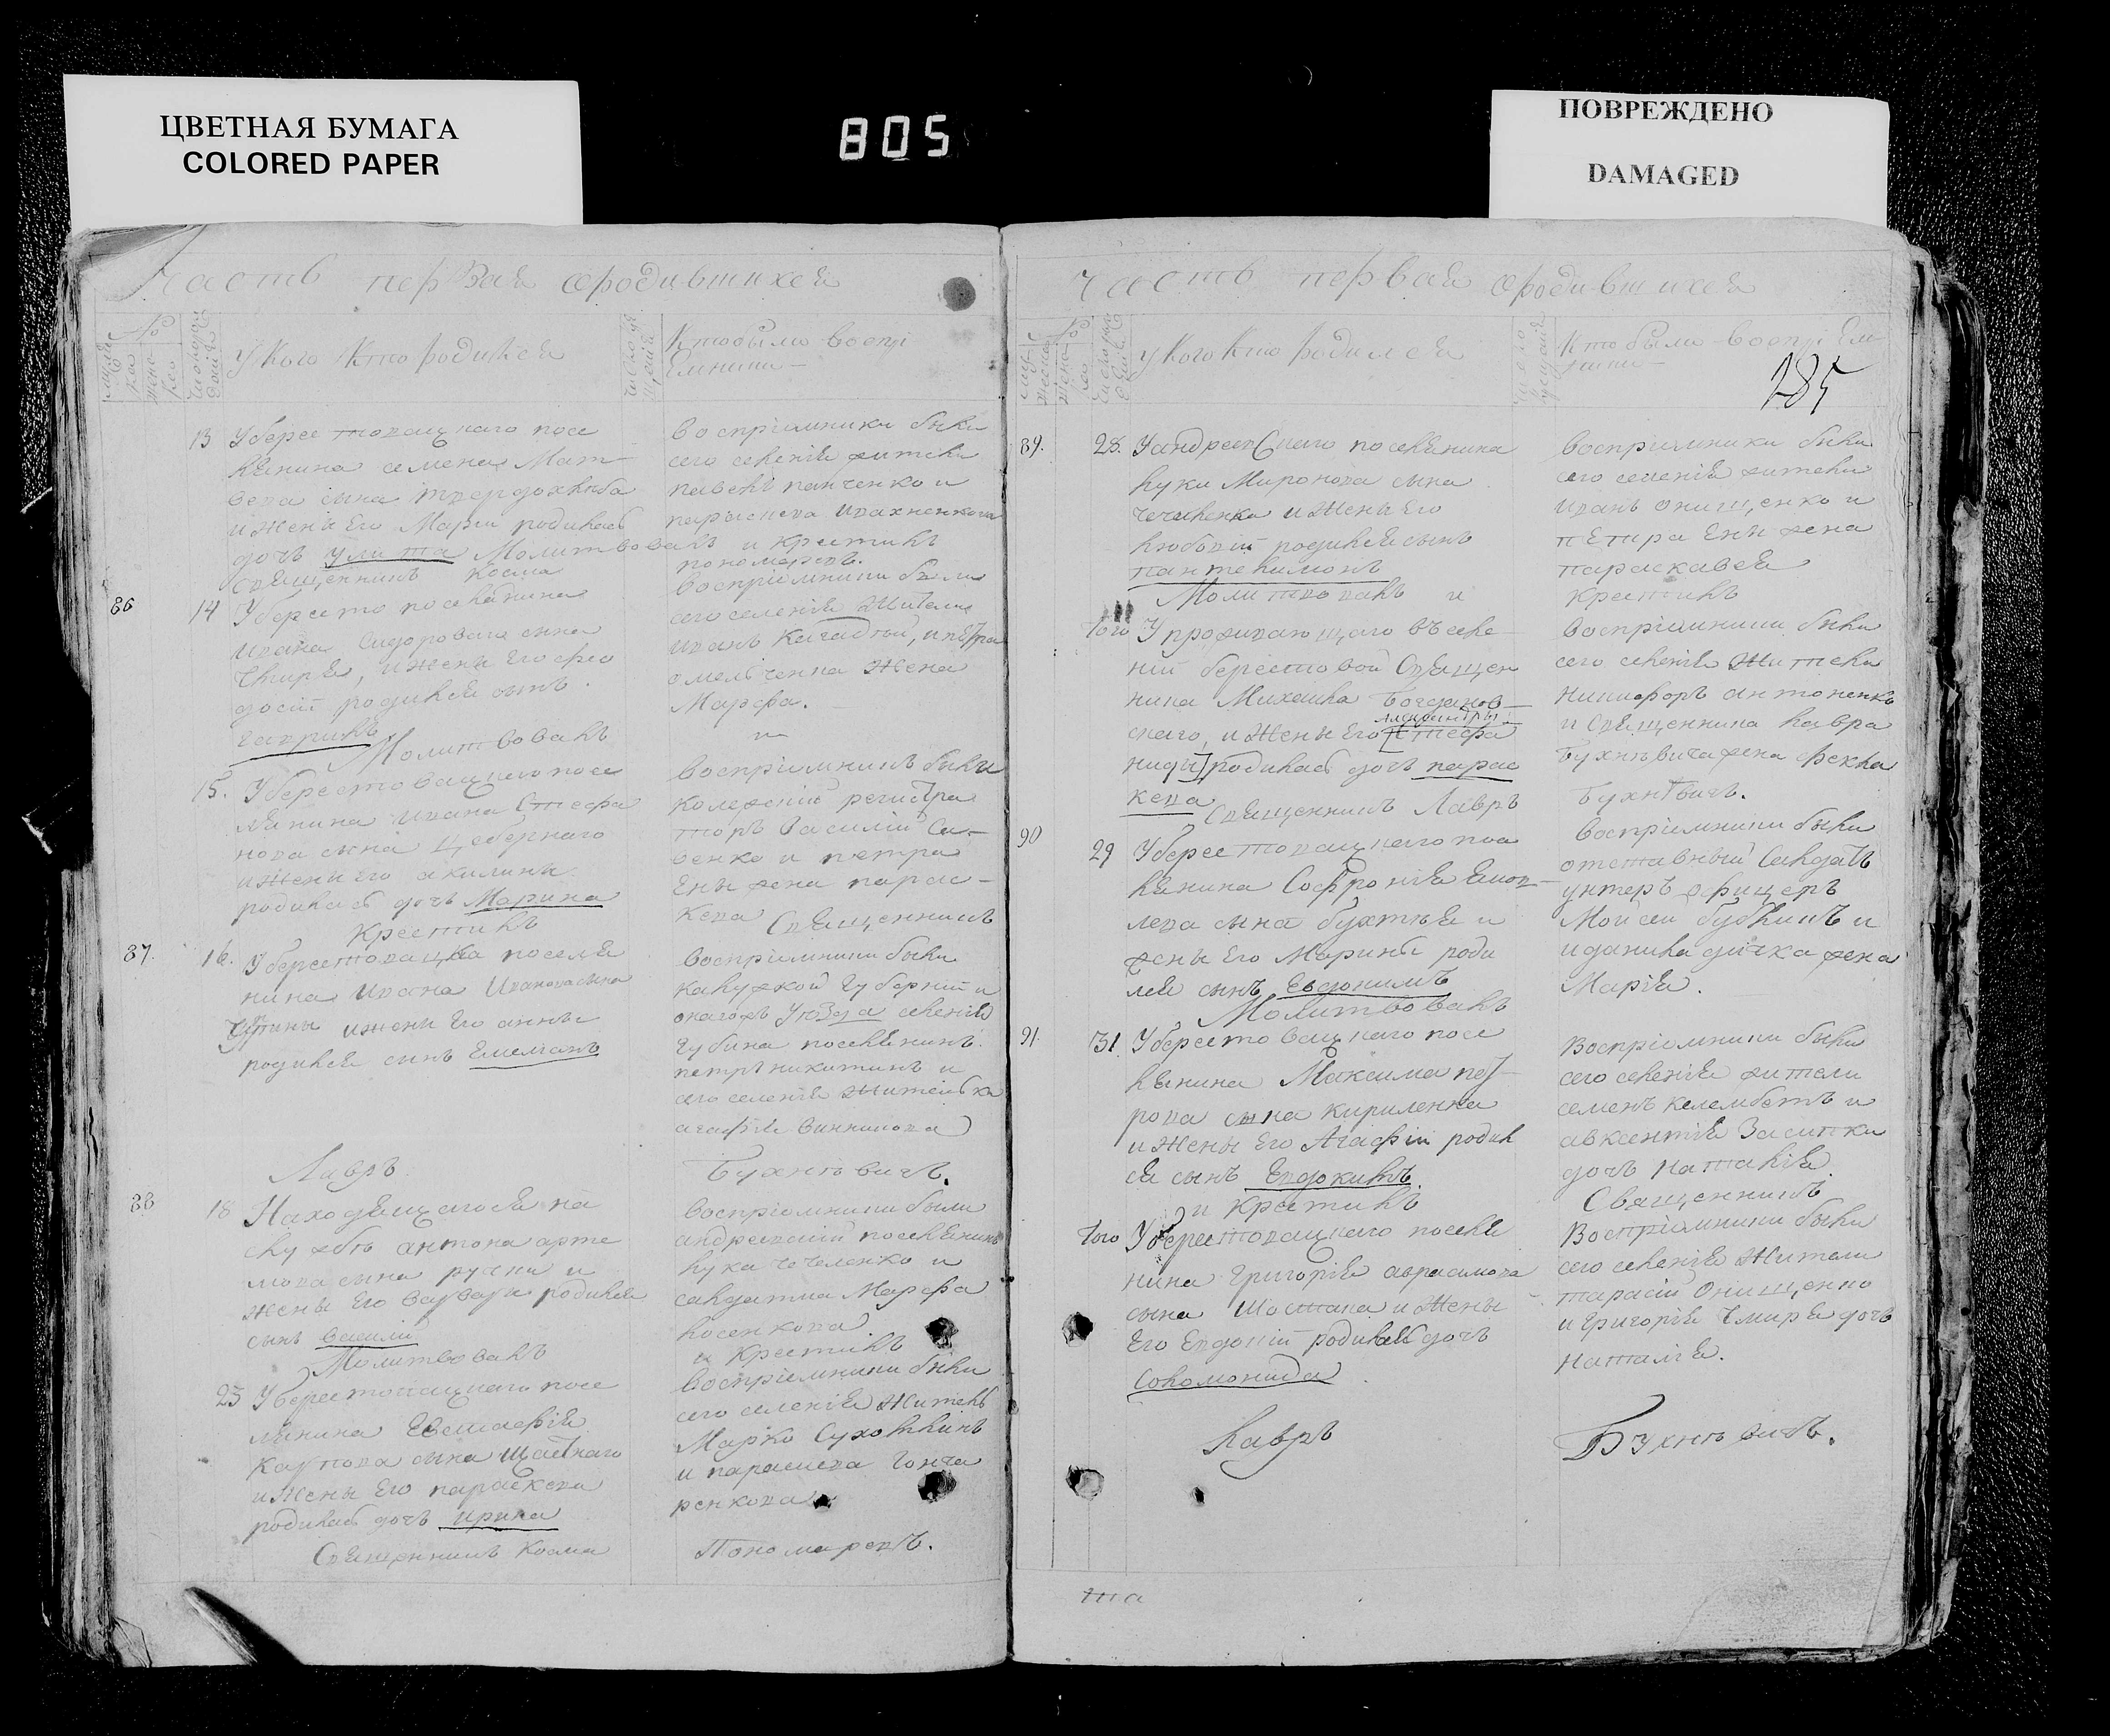 ЦВЕТНАЯ БУМАГА
COLORED PAPER
805
ПОВРЕЖДЕНО
DAMAGED
Часть первая ородившихся
У кого кто родился
Кто были воспрі
емники
13 У берестовацкаго посе
лянина семена Мат
веева сына твердохлѣба
и жени Его Маріи родилась
дочь улита Молитвовалъ
Священникъ Косма
воспріимники были
сего селенія жители
павелъ панченко и
параскева ивахненкова
и крестилъ
пономаревъ.
86 14 У бересто поселянина
ивана Сидорова сына
Чмиря, и жени Его фео
досіи родился сынъ
гаврилъ
Молитвовалъ
воспріимники были
сего селенія Жители
иванъ Кагадій, и петра
омельченка жена
Марфа.
и
15. У берестовацкаго посе
лянина ивана Стефа
нова сына Цебернаго
и жени Его акилины
родилась дочь Марина
Крестилъ
воспріимникъ были
колежскій регистра
торъ Василій Са
венко и петра
Ены жена парас
кева Священникъ
87. 16. У берестовацка поселя
нина ивана Иванова сына
и жени Его анны
родился сынъ Емелианъ
воспріимники были
калужкой губерніи и
онагожъ уѣзда селенія
губина поселянинъ
петръ никитинъ и
сего селенія жителька
агафія Винникова
Лавръ
Бухнѣвичъ.
88 18 Находящагося на
службѣ антона арте
мова сына ручки и
жены Его Варвари родился
сынъ василій
Молитвовалъ
воспріимники были
андреевскій поселянинъ
лука чечеленко и
салдатка Марфа
косенкова
и крестилъ
23 У берестовацкаго посе
лянина Евстафія
Карпова сына Щаснаго
и жены Его параскева
родилась дочь ирина
Священникъ Косма
воспріимники были
сего селенія Житель
Марко Сухолкинъ
и параскева Гонча
ренкова
Пономаревъ.
Часть первая ородившихся
У кого кто родился
Кто были воспріем
ники
285
89. 28. У андреевскаго поселянина
луки Миронова сына
чечиленка и жены Его
любовіи родился сынъ
пантелимонъ
Молитвовалъ и
воспріимники были
сего селенія жители
иванъ онищенко и
петра Ены жена
параскавея
крестилъ
того У проживающаго въ селе
ніи берестовой Священ
ника Михаила Богданов
скаго, и жены Его Стефа
александры
ниди родилась дочь парас
кева
Священникъ Лавръ
воспріимники были
сего селенія Жители
никифоръ антоненко
и Священника лавра
бухнѣвича жена фекла
Бухнѣвичъ.
90 29 У берестовацкаго посе
лянина Софронія Яков
лева сына бухтія и
жены Его Марины роди
лся сынъ Евдокимъ
Молитвовалъ
воспріимники были
отставный Салдатъ
унтеръ офицеръ
Моисей бубкинъ и
и данила дячка жена
Марія.
91. 31. У берестовацкаго посе
лянина Максима пет
рова сына кириленка
и жены Его Агафіи родил
ся сынъ Евдокимъ
и Крестилъ
Воспріимники были
сего селенія жители
семенъ келембетъ и
авксентія Засипки
дочь наталія.
Священникъ
того У берестовацкаго поселя
нина григорія авраамова
сына Шостака и жены
Его Евдокіи родилась дочь
Соломонида
Воспріимники были
сего селенія Жители
тарасій Онищенко
и григорія Чмиря дочь
наталія.
Лавръ
Бухнѣвичъ.